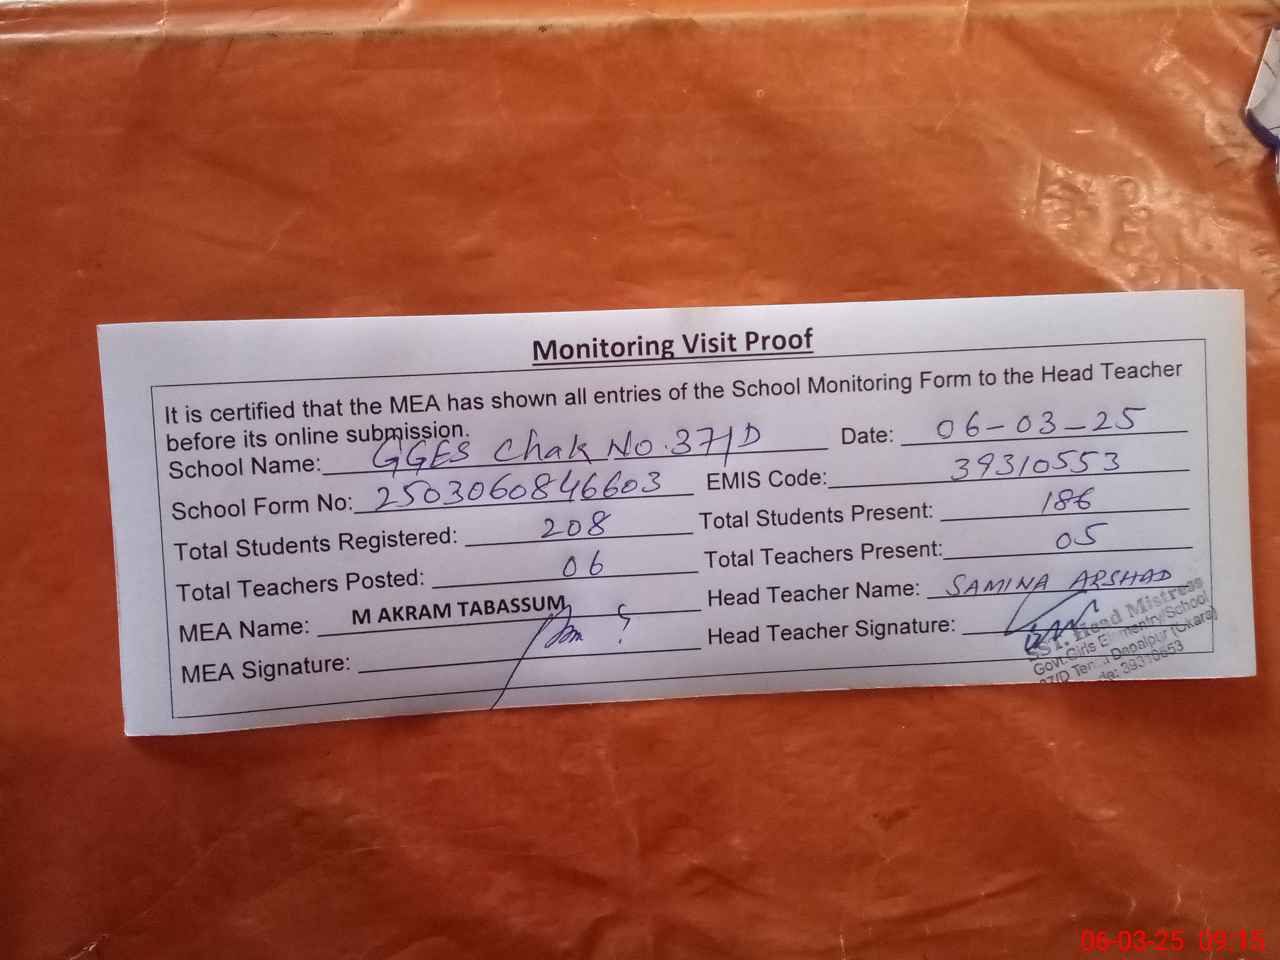 Monitoring Visit Proof
It is certified that the MEA has shown all entries of the School Monitoring Form to the Head Teacher
before its online submission.
School Name: GGES Chak No. 37/D Date: 06-03-25
School Form No: 2503060846603 EMIS Code: 39310553
Total Students Registered: 208 Total Students Present: 186
Total Teachers Posted: 06 Total Teachers Present: 05
MEA Name: M AKRAM TABASSUM Head Teacher Name: SAMINA ARSHAD
MEA Signature: Head Teacher Signature:
SST. Head Mistress
Govt. Girls Elementry School
37/D Depalpur (Okara)
06-03-25 09:15